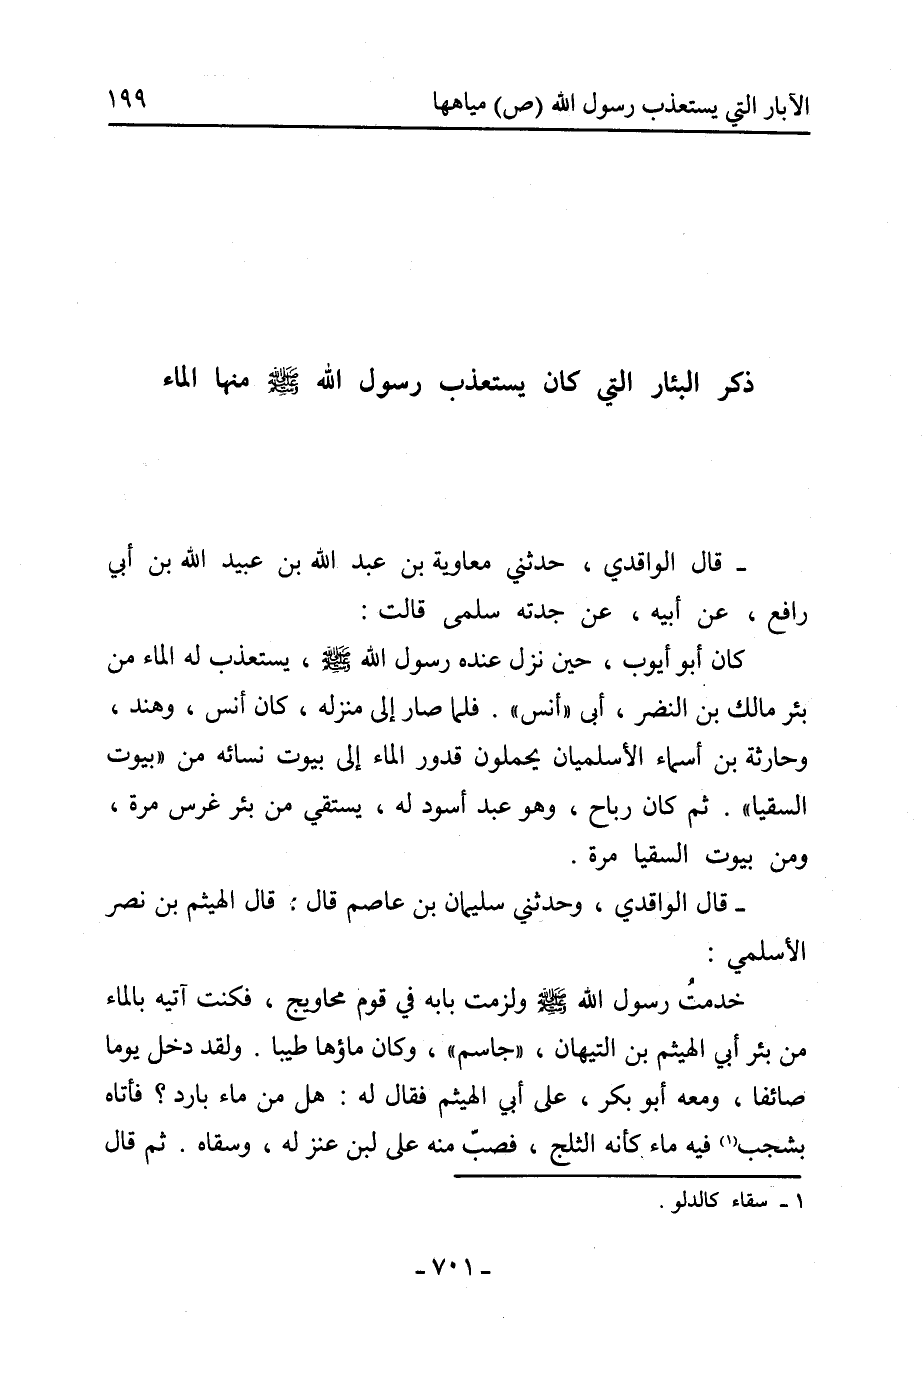 الآبار التي يستعذب رسول الله (ص) مياهها ١٩٩
ذكر البئار التي كان يستعذب رسول الله ﷺ منها الماء
ـ قال الواقدي ، حدثني معاوية بن عبد الله بن عبيد الله بن أبي
رافع ، عن أبيه ، عن جدته سلمى قالت :
كان أبو أيوب ، حين نزل عنده رسول الله ﷺ ، يستعذب له الماء من
بئر مالك بن النضر ، أبى «أنس» . فلما صار إلى منزله ، كان أنس ، وهند ،
وحارثة بن أسماء الأسلميان يحملون قدور الماء إلى بيوت نسائه من «بيوت
السقيا» . ثم كان رباح ، وهو عبد أسود له ، يستقي من بئر غرس مرة ،
ومن بيوت السقيا مرة .
ـ قال الواقدي ، وحدثني سليمان بن عاصم قال : قال الهيثم بن نصر
الأسلمي :
خدمتُ رسول الله ﷺ ولزمت بابه في قوم محاويج ، فكنت آتيه بالماء
من بئر أبي الهيثم بن التيهان ، «جاسم» ، وكان ماؤها طيبا . ولقد دخل يوما
صائفا ، ومعه أبو بكر ، على أبي الهيثم فقال له : هل من ماء بارد ؟ فأتاه
بشجب(١) فيه ماء كأنه الثلج ، فصبّ منه على لبن عنز له ، وسقاه . ثم قال
١ ـ سقاء كالدلو .
ـ ٧٠١ ـ